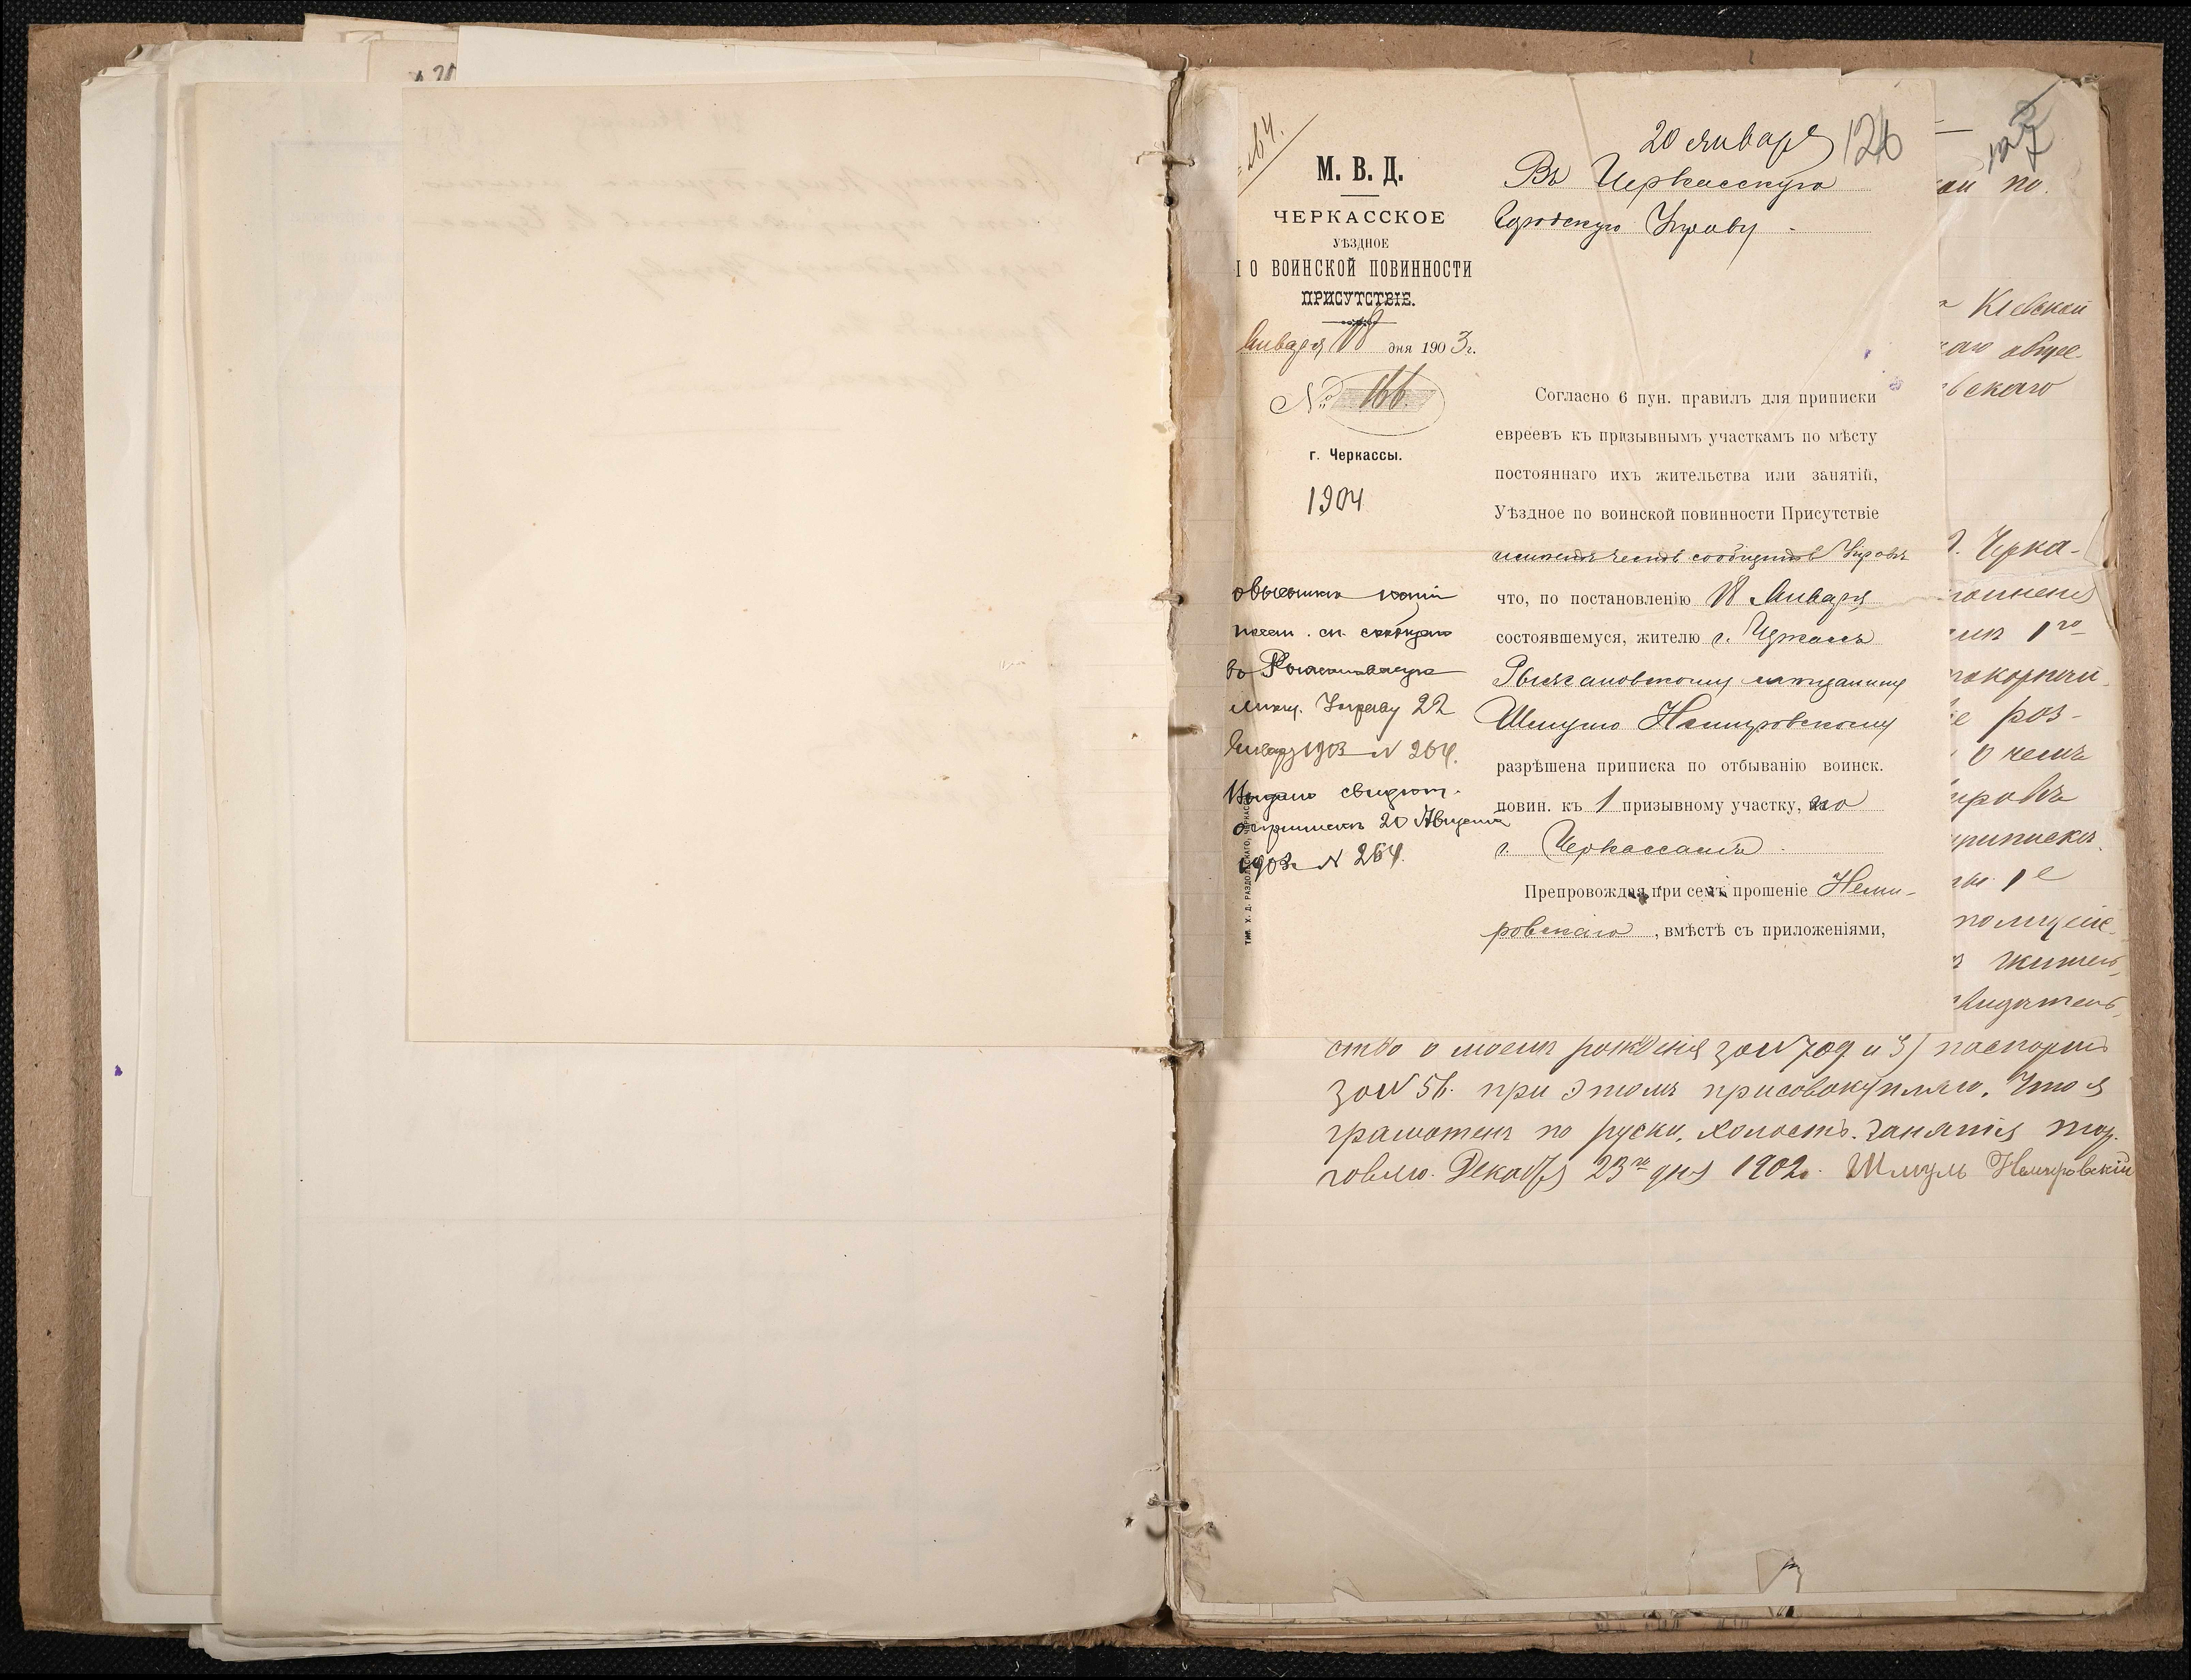 20 января
126
М. В. Д.
ЧЕРКАССКОЕ
УѢЗДНОЕ
О ВОИНСКОЙ ПОВИННОСТИ
ПРИСУТСТВІЕ.
Января 18 дня 1903 г.
№ 166.
г. Черкассы.
1904
Въ Черкасскую
Городскую Управу
Согласно 6 пун. правилъ для приписки
евреевъ къ призывнымъ участкамъ по мѣсту
постояннаго ихъ жительства или занятій,
Уѣздное по воинской повинности Присутствіе
имѣетъ честь сообщить Управѣ
что, по постановленію 18 Января
состоявшемуся, жителю г. Черкассъ
мѣщанину
Шмулю Немировскому
разрѣшена приписка по отбыванію воинск.
повин. къ 1 призывному участку, по
г. Черкассамъ
Препровождая при семъ прошеніе Неми-
ровскаго, вмѣстѣ съ приложеніями,
о высылкѣ копіи
посем. сп. сообщено
въ
Управу 22
Января 1903 N 264.
Выдано свидѣт.
о припискѣ 20 Августа
1903 N 264.
ТИП. Х. Д. РАЗДОЛЬСКАГО, ЧЕРКАС
127
ой по.
Кіевской
аго обще
вскаго
г. Черка-
1го
покорнѣй
роз-
о чемъ
управѣ
припискѣ.
1е
полицiи
житель
видѣтель
ство о моемъ рожденія за N 709 и 3) паспортъ
за N 56. при этомъ присовокупляю, что я
грамотенъ по руски, холостъ. занятія тор-
говлю. Декабря 23го дня 1902 г. Шмуль Немировскій